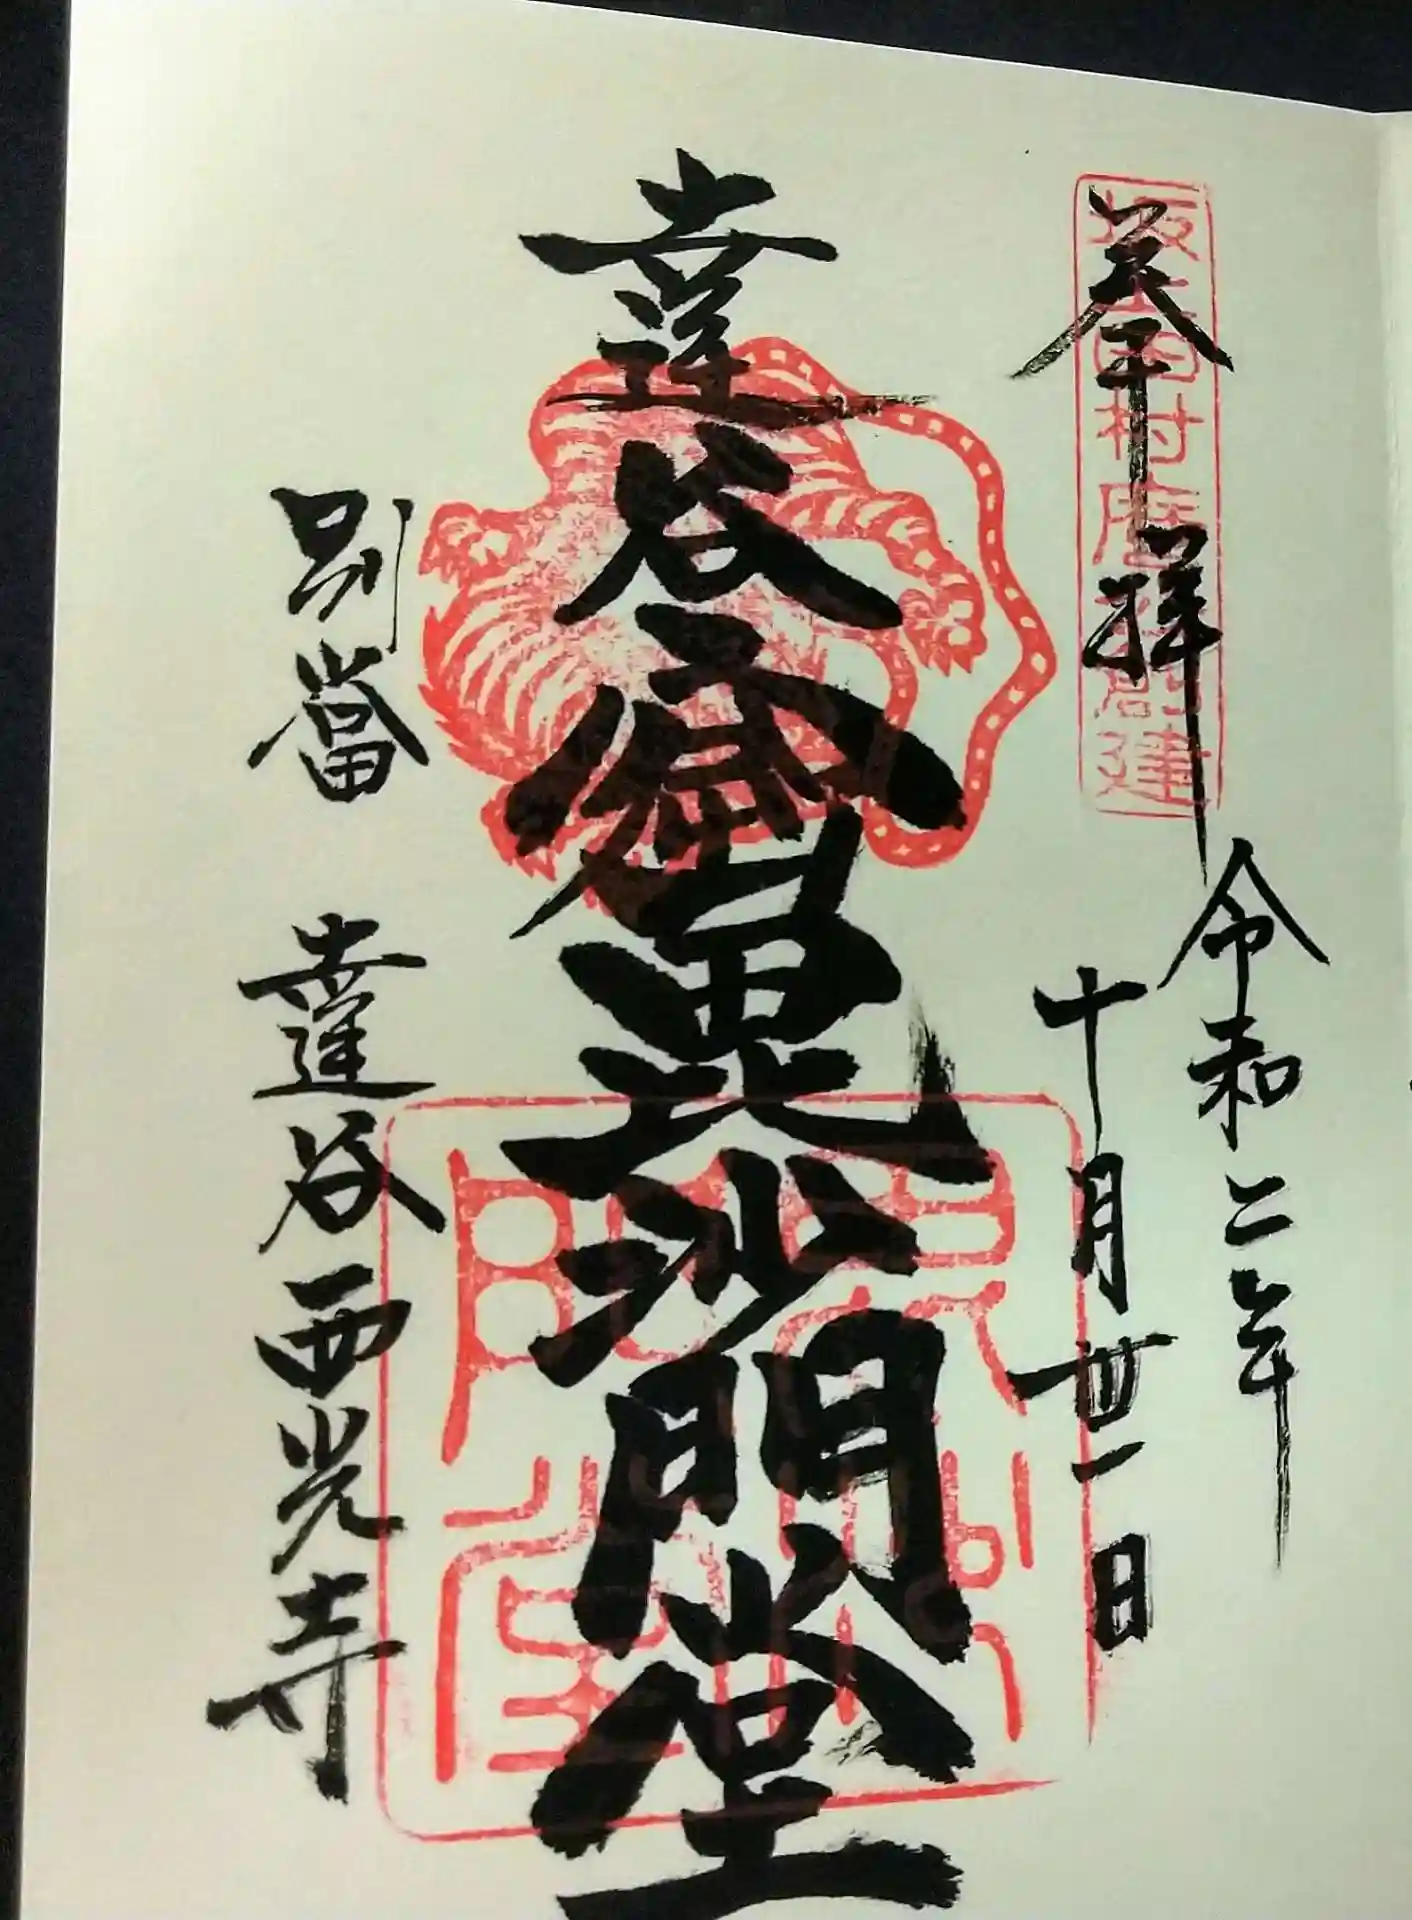 坂上田村麿公創建
奉拝
令和二年
十月丗一日
達谷窟毘沙門堂
別當 達谷西光寺
毘沙門堂